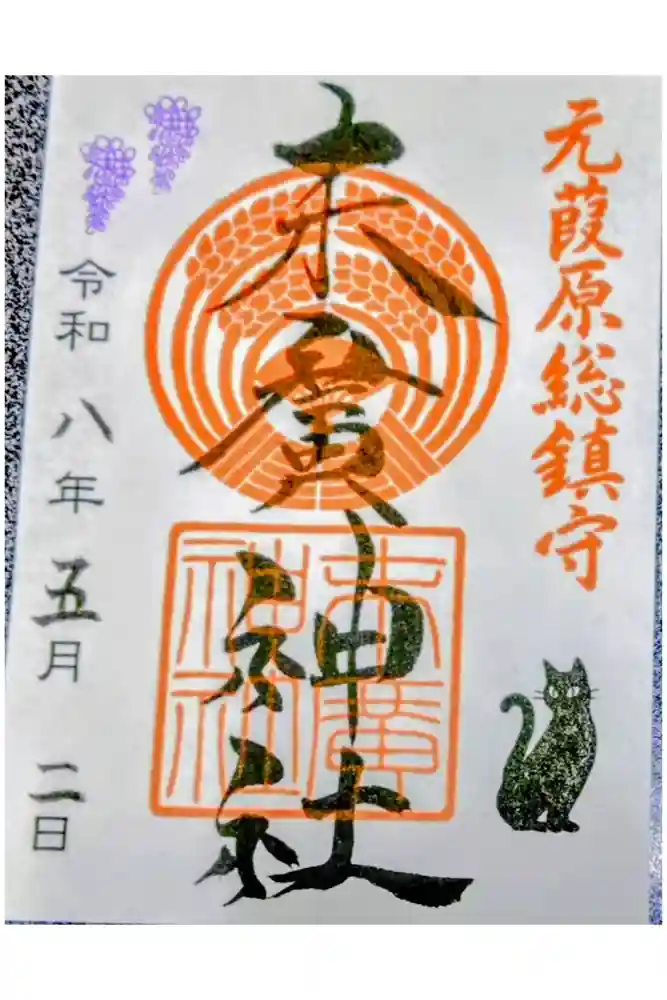 元葭原総鎮守
末廣神社
末廣
神社
令和八年五月二日